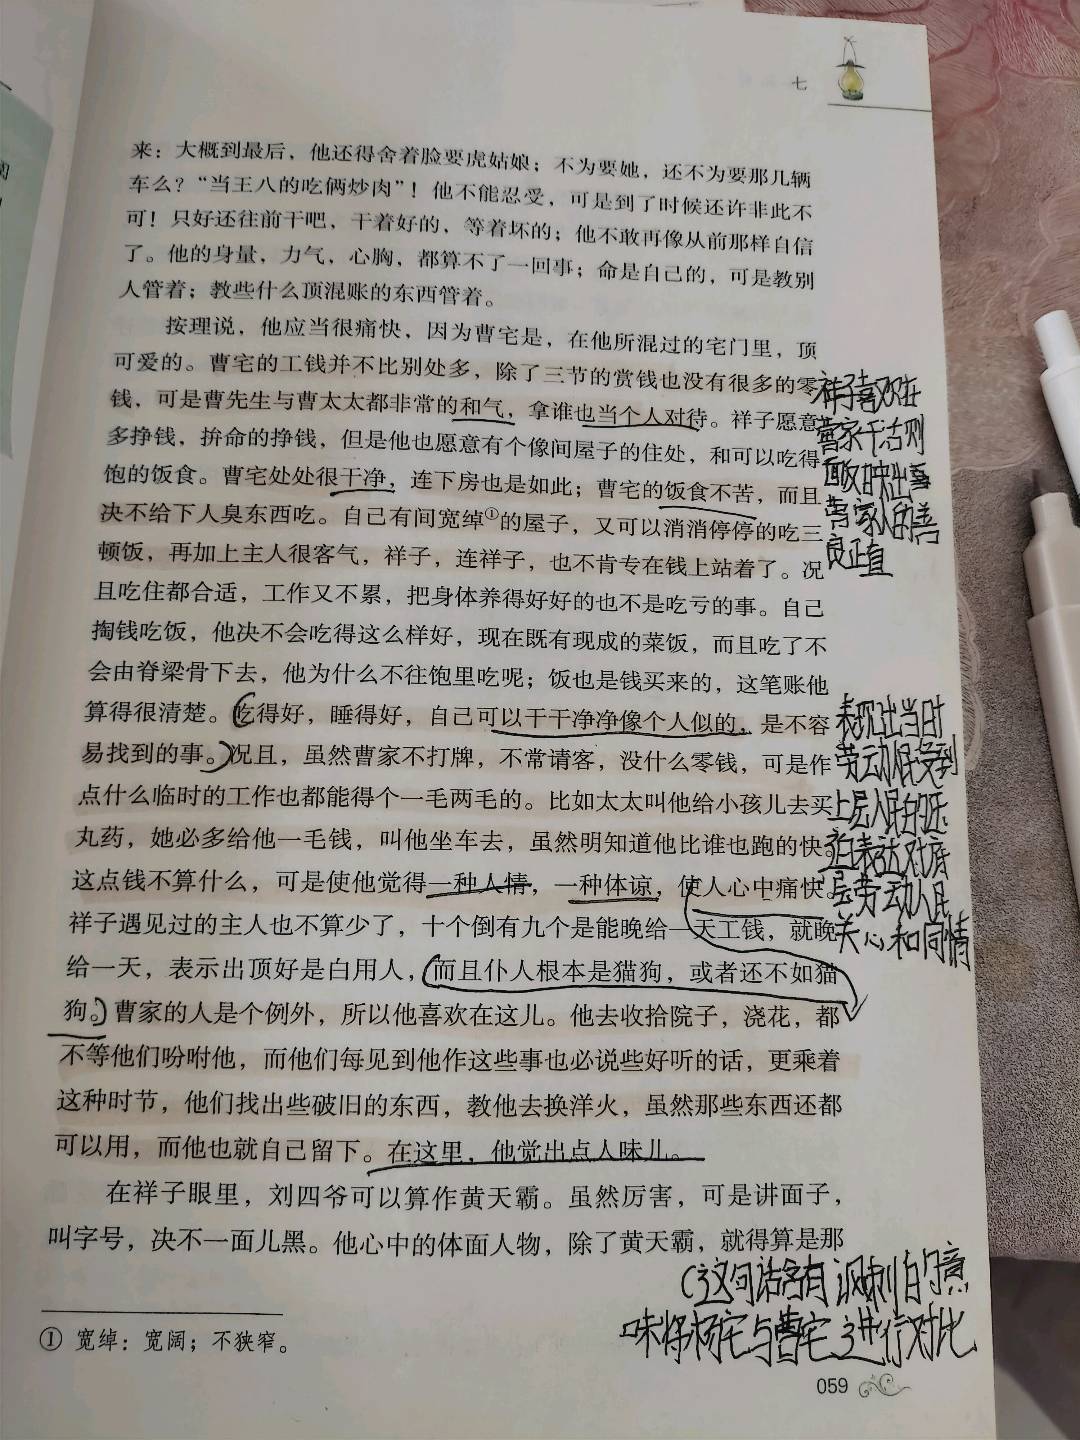 七
来：大概到最后，他还得舍着脸要虎姑娘；不为要她，还不为要那几辆
车么？“当王八的吃俩炒肉”！他不能忍受，可是到了时候还许非此不
可！只好还往前干吧，干着好的，等着坏的；他不敢再像从前那样自信
了。他的身量，力气，心胸，都算不了一回事；命是自己的，可是教别
人管着；教些什么顶混账的东西管着。
按理说，他应当很痛快，因为曹宅是，在他所混过的宅门里，顶
可爱的。曹宅的工钱并不比别处多，除了三节的赏钱也没有很多的零
钱，可是曹先生与曹太太都非常的和气，拿谁也当个人对待。祥子愿意
多挣钱，拚命的挣钱，但是他也愿意有个像间屋子的住处，和可以吃得
饱的饭食。曹宅处处很干净，连下房也是如此；曹宅的饭食不苦，而且
决不给下人臭东西吃。自己有间宽绰①的屋子，又可以消消停停的吃三
顿饭，再加上主人很客气，祥子，连祥子，也不肯专在钱上站着了。况
且吃住都合适，工作又不累，把身体养得好好的也不是吃亏的事。自己
掏钱吃饭，他决不会吃得这么样好，现在既有现成的菜饭，而且吃了不
会由脊梁骨下去，他为什么不往饱里吃呢；饭也是钱买来的，这笔账他
算得很清楚。吃得好，睡得好，自己可以干干净净像个人似的，是不容
易找到的事。况且，虽然曹家不打牌，不常请客，没什么零钱，可是作
点什么临时的工作也都能得个一毛两毛的。比如太太叫他给小孩儿去买
丸药，她必多给他一毛钱，叫他坐车去，虽然明知道他比谁也跑的快。
这点钱不算什么，可是使他觉得一种人情，一种体谅，使人心中痛快。
祥子遇见过的主人也不算少了，十个倒有九个是能晚给一天工钱，就晚
给一天，表示出顶好是白用人，而且仆人根本是猫狗，或者还不如猫
狗。曹家的人是个例外，所以他喜欢在这儿。他去收拾院子，浇花，都
不等他们吩咐他，而他们每见到他作这些事也必说些好听的话，更乘着
这种时节，他们找出些破旧的东西，教他去换洋火，虽然那些东西还都
可以用，而他也就自己留下。在这里，他觉出点人味儿。
在祥子眼里，刘四爷可以算作黄天霸。虽然厉害，可是讲面子，
叫字号，决不一面儿黑。他心中的体面人物，除了黄天霸，就得算是那
① 宽绰：宽阔；不狭窄。
059
祥子喜欢在
曹家干活则
面反映出
曹家人的善
良正直
表现出当时
劳动人民受到
上层人民的压
迫表达对底
层劳动人民
关心和同情
(这句话含有讽刺的意
味将杨宅与曹宅进行对比